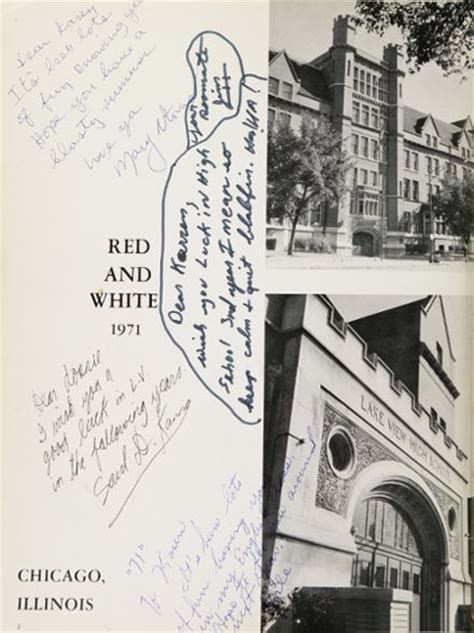 Dear Karen
It's been lots
of fun knowing ya
Hope you have a
blasty summer
Love ya
Mary
Dear Karen,
wish you Luck in High
School 3rd year I mean so
keep calm & quit blabbin. HaHA!!
your
Roommate
RED
AND
WHITE
1971
LAKE VIEW HIGH SCHOOL
Dear
I wish you a
good luck in L.V.
in the following years.
Saul D.
"71"
To Karen
It's been lots
of fun having you
in my
Hope
around
CHICAGO,
ILLINOIS
2